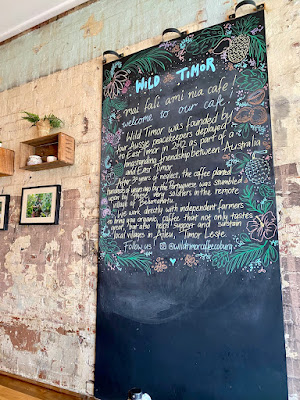 WILD TIMOR
mai fali ami nia cafe!
welcome to our cafe
Wild Timor was founded by
four Aussie peacekeepers deployed
to East Timor in 2012 as part of a
longstanding friendship between Australia
and East Timor.
After 30 years of neglect, the coffee planted
hundreds of years ago by the Portuguese was stumbled
upon by these very soldiers in the remote
village of
We work directly with independent farmers
to bring you organic coffee that not only tastes
great, but also helps support and sustain
local villages in Aileu, Timor Leste.
Follow us @wildtimorcoffeecoburg